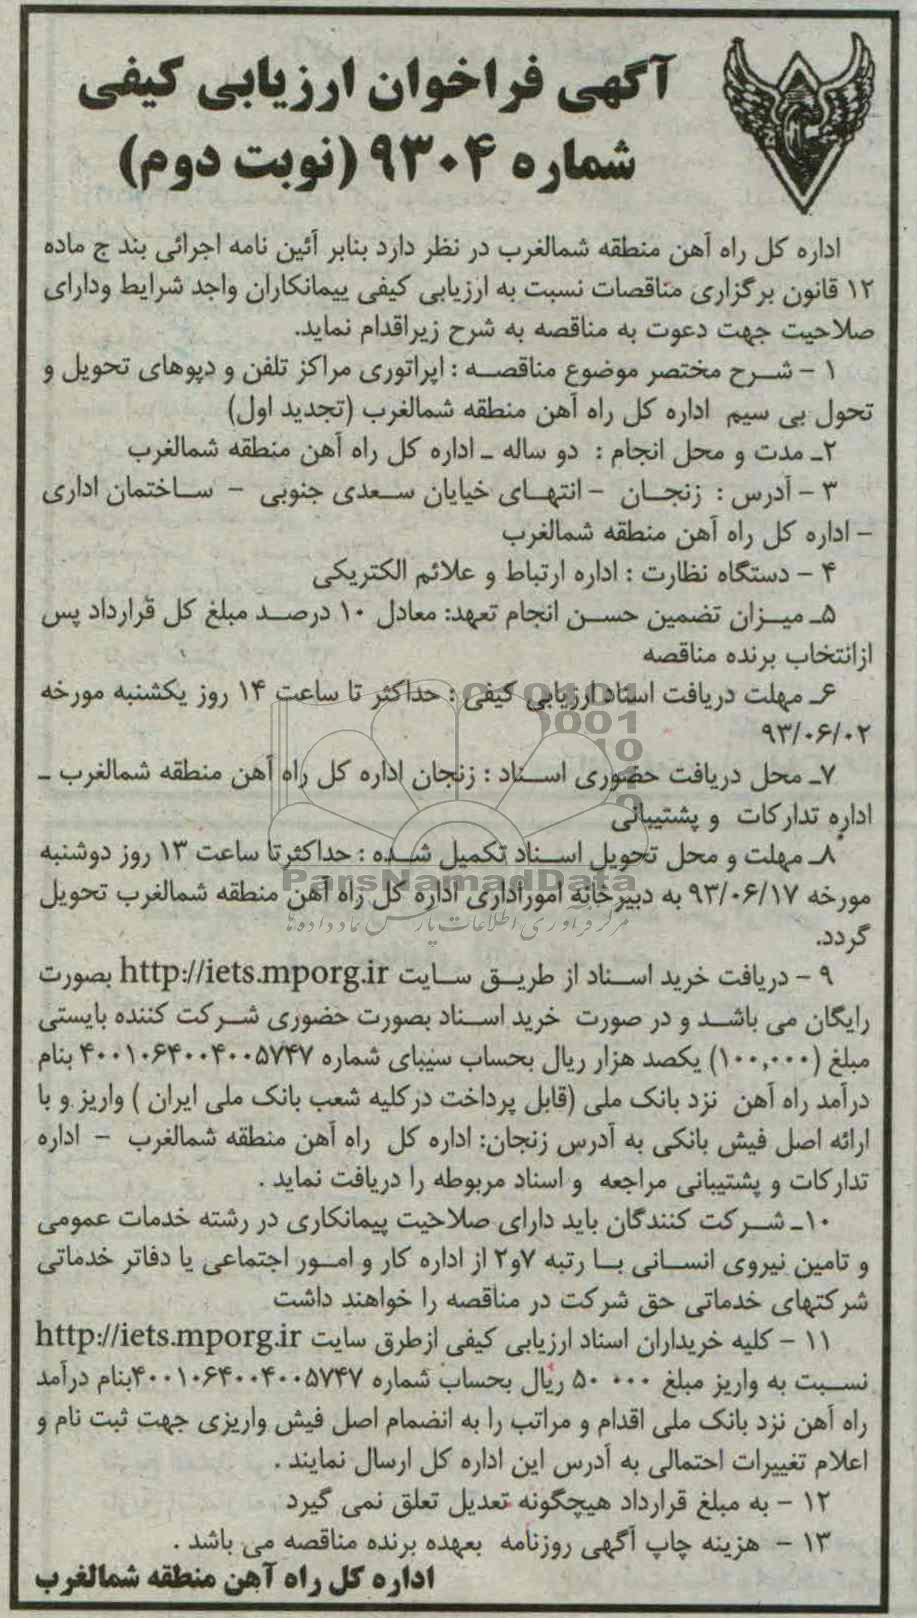 آگهی فراخوان ارزیابی کیفی
شماره ۹۳۰۴ (نوبت دوم)
اداره کل راه آهن منطقه شمالغرب در نظر دارد بنابر آئین نامه اجرائی بند ج ماده
۱۲ قانون برگزاری مناقصات نسبت به ارزیابی کیفی پیمانکاران واجد شرایط ودارای
صلاحیت جهت دعوت به مناقصه به شرح زیراقدام نماید.
۱ - شرح مختصر موضوع مناقصه : اپراتوری مراکز تلفن و دپوهای تحویل و
تحول بی سیم اداره کل راه آهن منطقه شمالغرب (تجدید اول)
۲ـ مدت و محل انجام : دو ساله ـ اداره کل راه آهن منطقه شمالغرب
۳ - آدرس : زنجان - انتهای خیابان سعدی جنوبی - ساختمان اداری
- اداره کل راه آهن منطقه شمالغرب
۴ - دستگاه نظارت : اداره ارتباط و علائم الکتریکی
۵ـ میزان تضمین حسن انجام تعهد: معادل ۱۰ درصد مبلغ کل قرارداد پس
ازانتخاب برنده مناقصه
۶ـ مهلت دریافت اسناد ارزیابی کیفی : حداکثر تا ساعت ۱۴ روز یکشنبه مورخه
۹۳/۰۶/۰۲
۷ـ محل دریافت حضوری اسناد : زنجان اداره کل راه آهن منطقه شمالغرب ـ
اداره تدارکات و پشتیبانی
۸ـ مهلت و محل تحویل اسناد تکمیل شده : حداکثرتا ساعت ۱۳ روز دوشنبه
ParsNamadData
مورخه ۹۳/۰۶/۱۷ به دبیرخانه اموراداری اداره کل راه آهن منطقه شمالغرب تحویل
مرکز فرآوری اطلاعات پارس نماد داده ها
گردد.
۹ - دریافت خرید اسناد از طریق سایت http://iets.mporg.ir بصورت
رایگان می باشد و در صورت خرید اسناد بصورت حضوری شرکت کننده بایستی
مبلغ (۱۰۰,۰۰۰) یکصد هزار ریال بحساب سیبای شماره ۴۰۰۱۰۶۴۰۰۴۰۰۵۷۴۷ بنام
درآمد راه آهن نزد بانک ملی (قابل پرداخت درکلیه شعب بانک ملی ایران ) واریز و با
ارائه اصل فیش بانکی به آدرس زنجان: اداره کل راه آهن منطقه شمالغرب - اداره
تدارکات و پشتیبانی مراجعه و اسناد مربوطه را دریافت نماید .
۱۰ـ شرکت کنندگان باید دارای صلاحیت پیمانکاری در رشته خدمات عمومی
و تامین نیروی انسانی با رتبه ۷و۲ از اداره کار و امور اجتماعی یا دفاتر خدماتی
شرکتهای خدماتی حق شرکت در مناقصه را خواهند داشت
۱۱ - کلیه خریداران اسناد ارزیابی کیفی ازطرق سایت http://iets.mporg.ir
نسبت به واریز مبلغ ۵۰ ۰۰۰ ریال بحساب شماره ۴۰۰۱۰۶۴۰۰۴۰۰۵۷۴۷بنام درآمد
راه آهن نزد بانک ملی اقدام و مراتب را به انضمام اصل فیش واریزی جهت ثبت نام و
اعلام تغییرات احتمالی به آدرس این اداره کل ارسال نمایند .
۱۲ - به مبلغ قرارداد هیچگونه تعدیل تعلق نمی گیرد
۱۳ - هزینه چاپ آگهی روزنامه بعهده برنده مناقصه می باشد .
اداره کل راه آهن منطقه شمالغرب